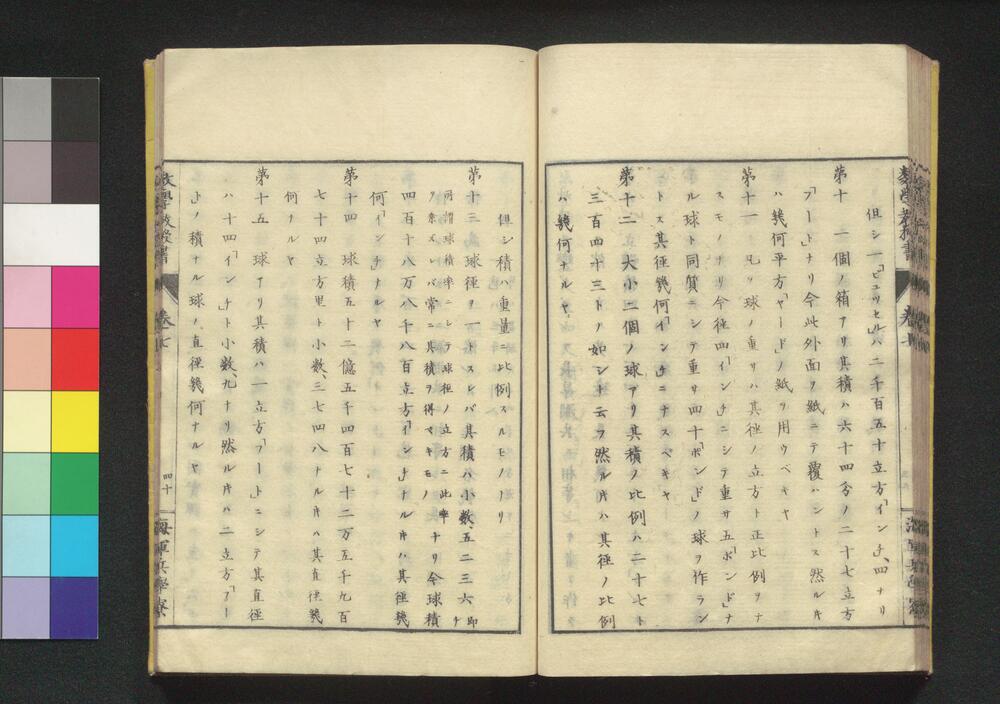 但シ一「ビュッセル」ハ二千百五十立方「インチ」、四ナリ
第十 一個ノ箱アリ其積ハ六十四分ノ二十七立方
「フート」ナリ今此外面ヲ紙ニテ覆ハントス然ルキ
ハ幾何平方「ヤード」ノ紙ヲ用ウベキヤ
第十一 凡ソ球ノ重サハ其径ノ立方ト正比例ヲナ
スモノナリ今径四「インチ」ニシテ重サ五「ポンド」ナ
ル球ト同質ニシテ重サ四十「ポンド」ノ球ヲ作ラン
トス其径幾何「インチ」ニナスベキヤ
第十二 大小二個ノ球アリ其積ノ比例ハ二十七ト
三百四十三トノ如シト云フ然ルキハ其径ノ比例
ハ幾何ナルヤ
數學教授書 卷七
海軍兵學寮
但シ積ハ重量ニ比例スルモノナリ
第十三 球径ヲ一トスレバ其積ハ小数、五二三六即チ
所謂球積率ニシテ球径ノ立方ニ此率
ヲ乗ズレバ常ニ其積ヲ得ベキモノナリ今球積
四百十八万八千八百立方「インチ」ナルキハ其径幾
何「インチ」ナルヤ
第十四 球積五十二億五千四百七十二万五千九百
七十四立方里ト小数、三七四八ナルキハ其直径幾
何ノルヤ
第十五 球アリ其積ハ一立方「フート」ニシテ其直径
ハ十四「インチ」ト小数、九ナリ然ルキハ二立方「フー
ト」ノ積ナル球ノ直径幾何ナルヤ
數學教授書 卷七 四十 海軍兵學寮